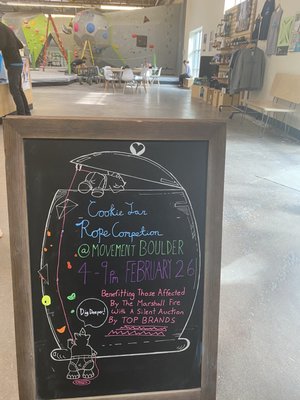 Cookie Jar
Rope Competion
@ MOVEMENT BOULDER
4-9pm FEBRUARY 26
Benefitting Those Affected
By The Marshall Fire
With A Silent Auction
By TOP BRANDS
Dig Deeper!